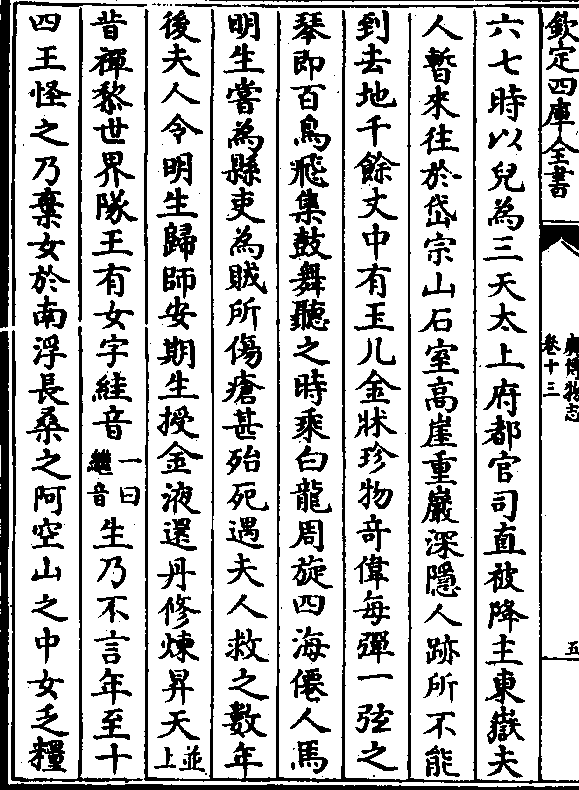 欽定四庫全書
廣博物志
卷十三
五
六七時以兒為三天太上府都官司直被降主東嶽夫
人暫來往於岱宗山石室高崖重巖深隱人跡所不能
到去地千餘丈中有玉几金牀珍物奇偉每彈一弦之
琴即百鳥飛集鼓舞聽之時乘白龍周旋四海僊人馬
明生嘗為縣吏為賊所傷瘡甚殆死遇夫人救之數年
後夫人令明生歸師安期生授金液還丹修煉昇天並上
昔禪黎世界隊王有女字絓音一曰纏音生乃不言年至十
四王怪之乃棄女於南浮長桑之阿空山之中女乏糧